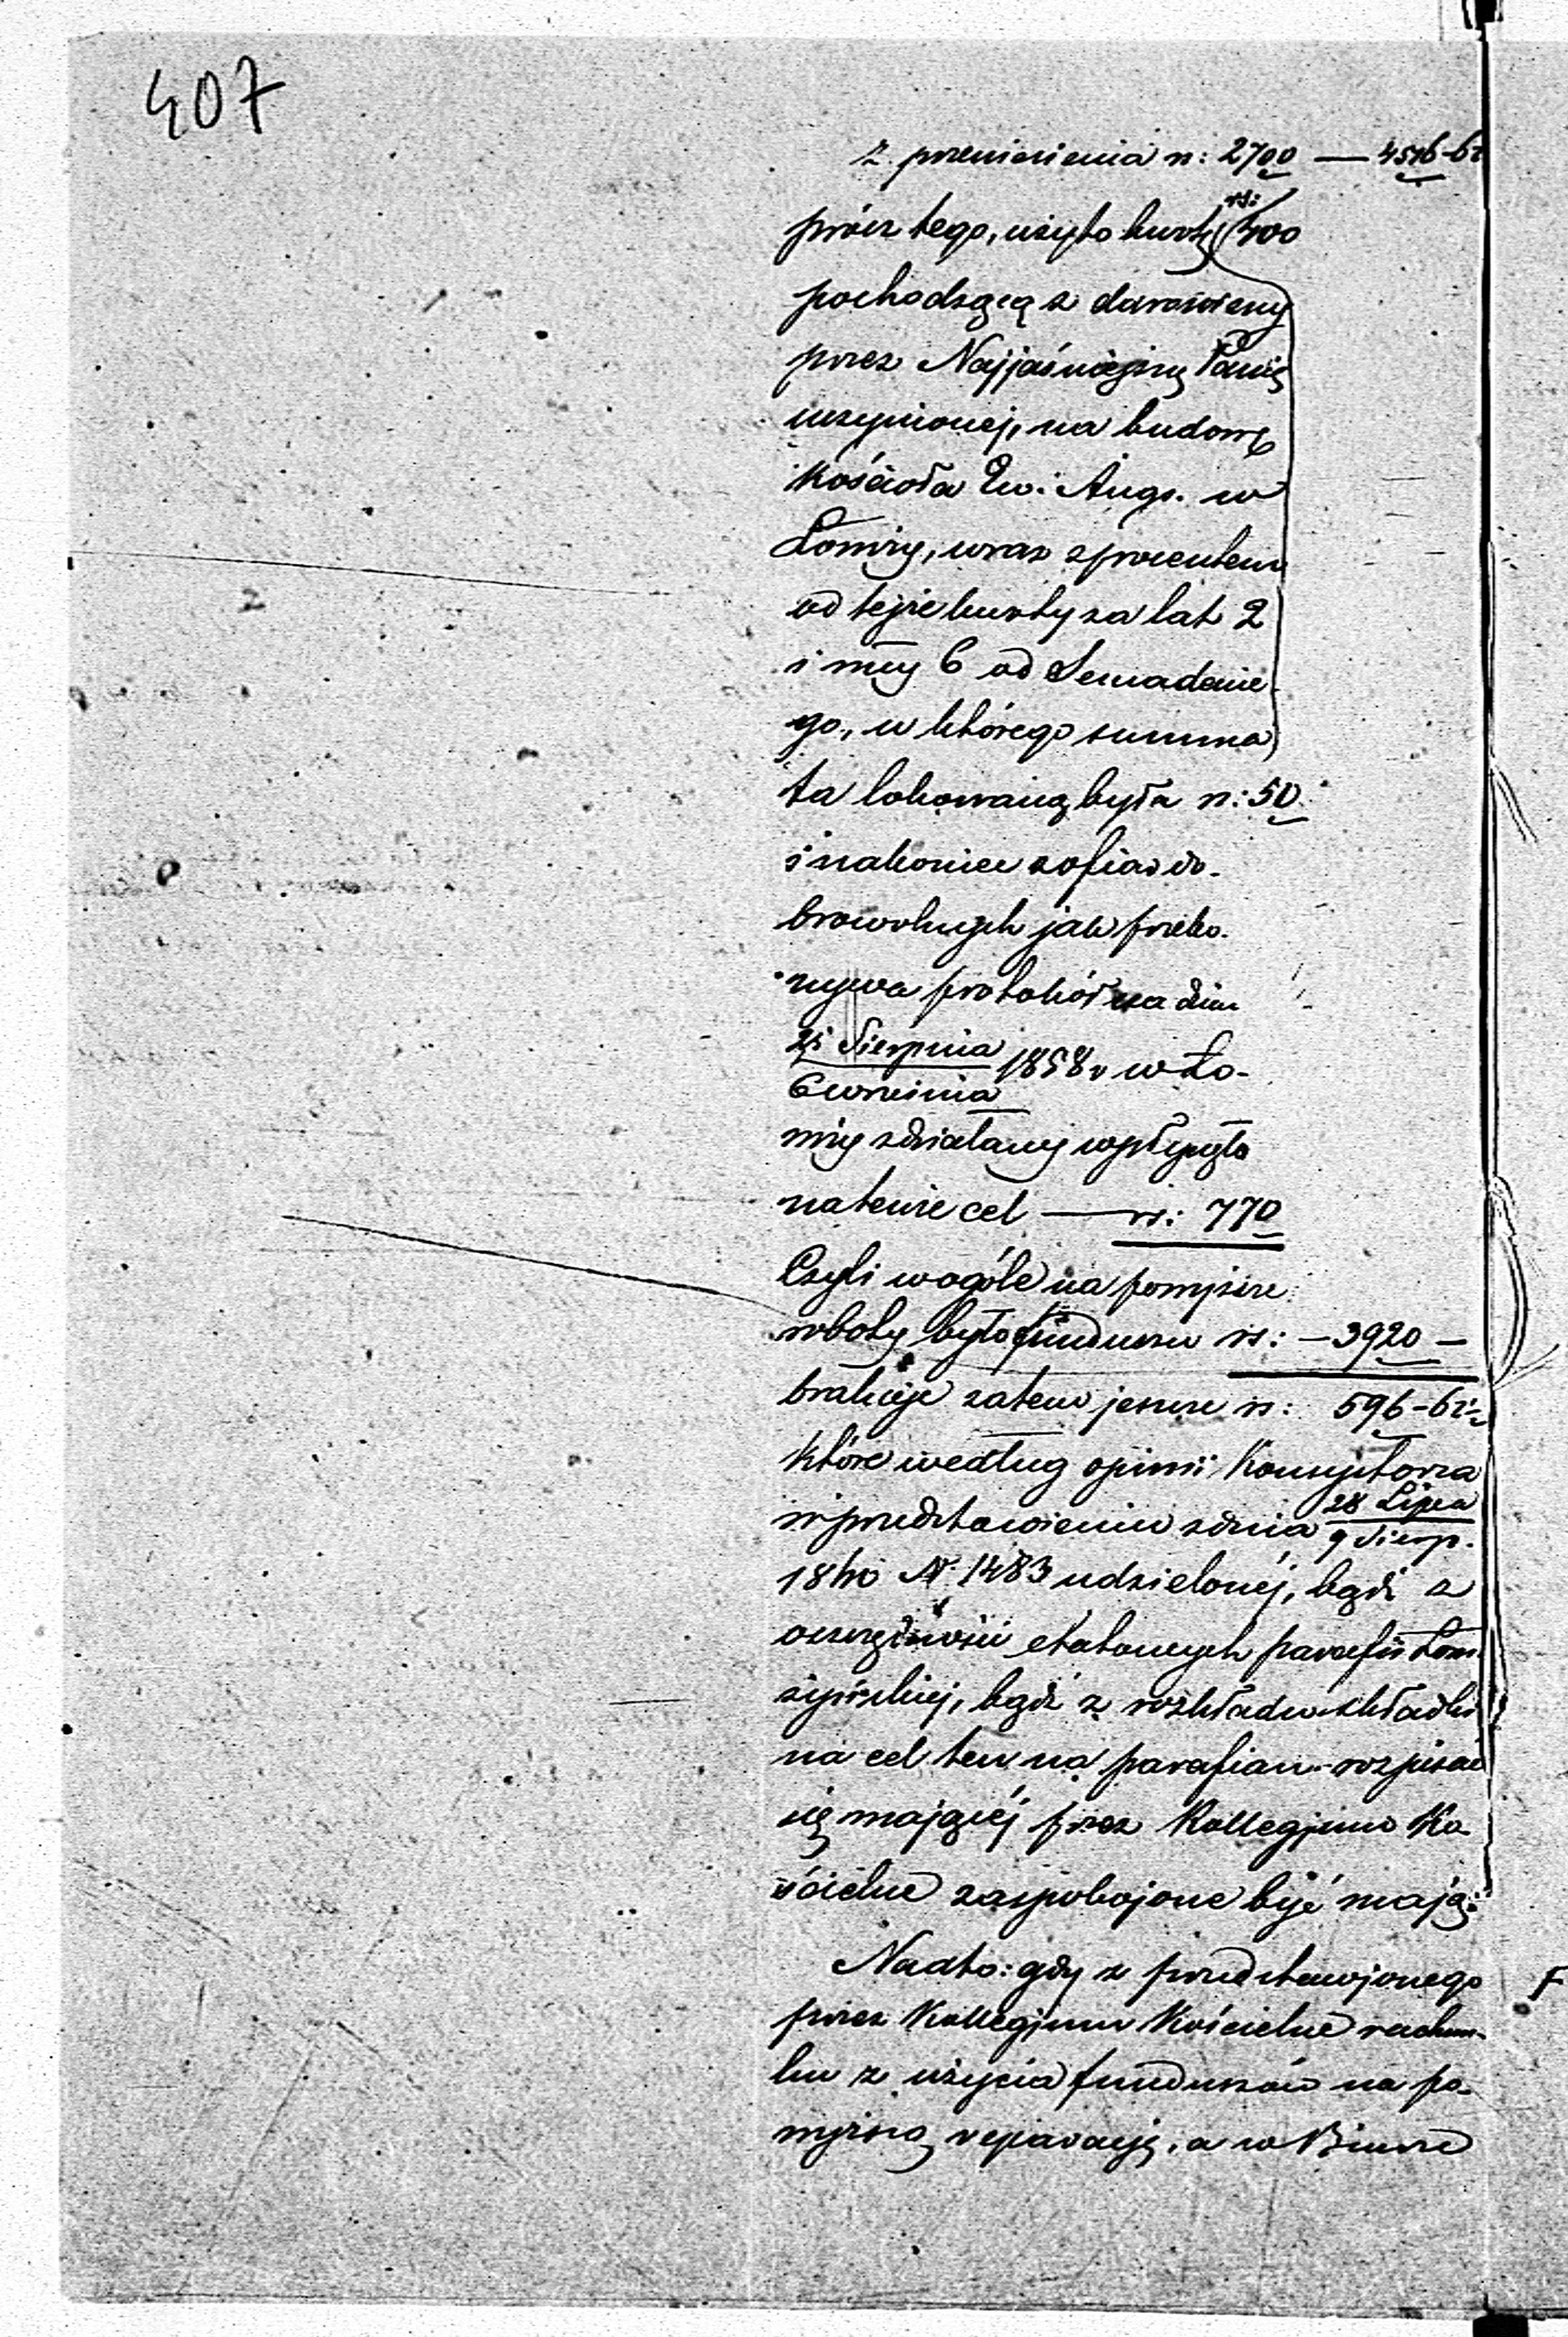 407
z przeniesienia rs: 2700 — 4516-6½
prócz tego, użyto kwotę rs: 400
pochodzącą z darowizny
przez Najjaśniejszą Panią
uczynionej, na budowę
kościoła Ew: Augs. w
Łomży, wraz z procentem
od tejże kwoty za lat 2
i mcy 6 od Semadenie-
go, u którego summa
ta lokowaną była rs: 50
i nakoniec z ofiar do-
browolnych jak przeko-
nywa protokół na dniu
25 Sierpnia
6 Września 1858 r w Ło-
mży zdziałany wpłynęło
na tenże cel — rs: 770
Czyli wogóle na powyższe
roboty było funduszu rs: — 3920 —
brakuje zatem jeszcze rs: 596-6½
które według opinii Konsystorza
w przedstawieniu z dnia 28 Lipca
9 Sierp.
1860 N. 1483 udzielonéj, bądź z
oszczędności etatowych parafii Łom
żyńskiej, bądź z rozkładu składki
na cel ten na parafian rozpisać
się mającéj przez Kollegjum Ko-
ścielne zaspokojone być mają:
Nadto: gdy z przedstawionego
przez Kollegjum Kościelne rachun-
ku z użycia funduszów na po-
myższą reparację, a w Biurze